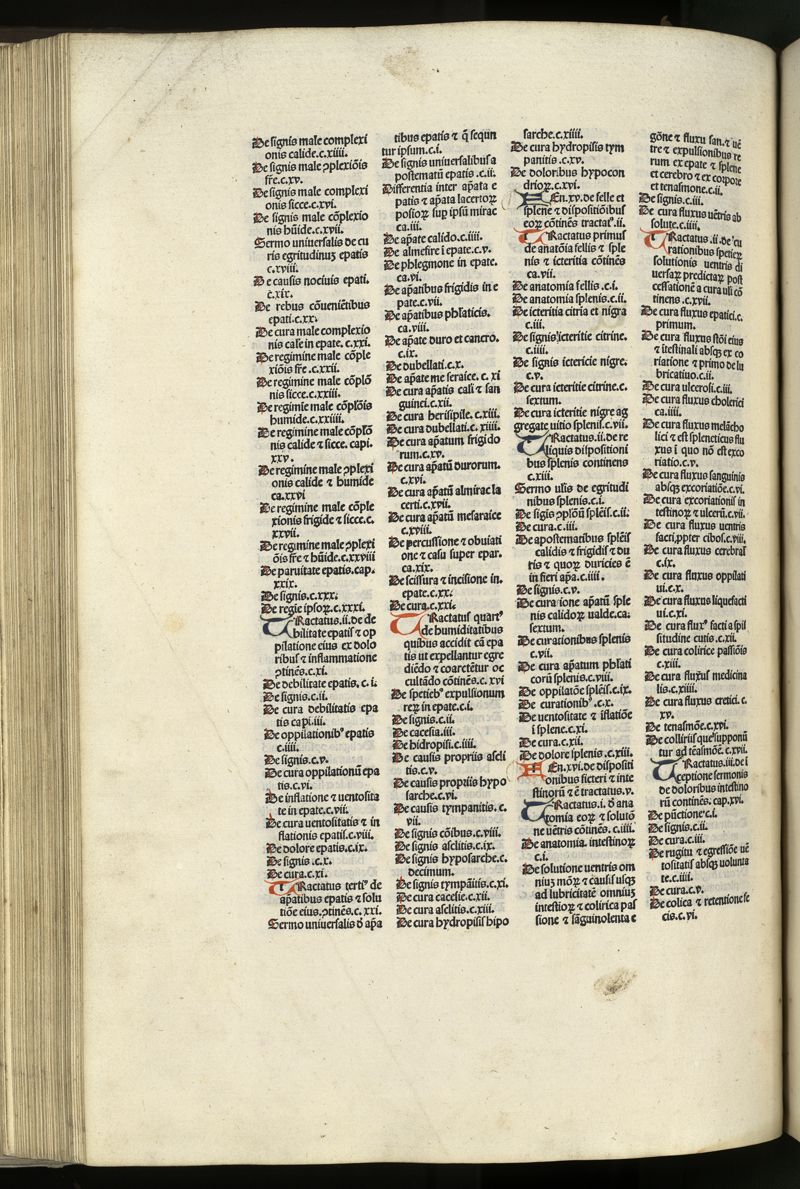 De signis male complexi
onis calide.c.xiiii.
De signis male ꝯplexiõis
fre.c.xv.
De signis male complexi
onis sicce.c.xvi.
De signis male cõplexio
nis hũide.c.xvii.
Sermo uniuersalis de cu
ris egritudinuʒ epatis
c.xviii.
De causis nociuis epati.
c.xix.
De rebus cõueniẽtibus
epati.c.xx.
De cura male complexio
nis case in epate. c.xxi.
De regimine male cõple
xiõis fre.c.xxii.
De regimine male cõplõ
nis sicce.c.xxiii.
De regimie male cõplõis
humide.c.xxiiii.
De regimine male cõplõ
nis calide ⁊ sicce. capi.
xxv.
De regimine male ꝯplexi
onis calide ⁊ humide
ca.xxvi
De regimine male cõple
xionis frigide ⁊ sicce.c.
xxvii.
De regimine male ꝯplexi
õis fre ⁊ hũide.c.xxviii
De paruitate epatis.cap.
xxix.
De signis.c.xxx.
De regie ipsoꝝ.c.xxxi.
TRactatus.ii.de de
bilitate epatis ⁊ op
pilatione eius ex dolo
ribus ⁊ inflammatione
ꝯtinẽs.c.xi.
De debilitate epatis. c. i.
De signis.c.ii.
De cura debilitatis epa
tis capi.iii.
De oppilationibꝰ epatis
c.iiii.
De signis.c.v.
De cura oppilationũ epa
tis.c.vi.
De inflatione ⁊ uentosita
te in epate.c.vii.
De cura uentositatis ⁊ in
flationis epatis.c.viii.
De dolore epatis.c.ix.
De signis .c.x.
De cura.c.xi.
TRactatus tertiꝰ de
ap̃atibus epatis ⁊ solu
tiõe eius.ꝯtinẽs.c. xxi.
Sermo uniuersalis d̃ ap̃a
tibus epatis ⁊ q̃ sequn
tur ipsum.c.i.
De signis uniuersalibus a
postematũ epatis .c.ii.
Differentia inter ap̃ata e
patis ⁊ ap̃ata lacertoꝝ
posioꝝ sup ipsũ mirac
ca.iii.
De ap̃ate calido.c.iiii.
De almesire ĩ epate.c.v.
De phlegmone in epate.
ca.vi.
De ap̃atibus frigidis in e
pate.c.vii.
De ap̃atibus phlaticis.
ca.viii.
De ap̃ate duro et cancro.
c.ix.
De dubellati.c.x.
De ap̃ate meseraice. c. xi
De cura ap̃atis casi ⁊ san
guinei.c.xii.
De cura herisipile. c.xiii.
De cura dubellati.c. xiiii.
De cura ap̃atum frigido
rum.c.xv.
De cura ap̃atũ durorum.
c.xvi.
De cura ap̃atũ almiracla
certi.c.xvii.
De cura ap̃atũ mesaraice
c.xviii.
De percussione ⁊ obuiati
one ⁊ casu super epar.
ca.xix.
De scissura ⁊ incisione in.
epate.c.xx.
De cura.c.xxi.
TRactatus quartꝰ
de humiditatibus
quibus accidit cũ epa
tis ut expellantur egre
diẽdo ⁊ coarctẽtur oc
cultãdo cõtinẽs.c. xvi
De spetiebꝰ expulsionum
reꝝ in epate.c.i.
De signis.c.ii.
De cacesia.iii.
De hidropisi.c.iiii.
De causis propriis ascli
tis.c.v.
De causis propriis hypo
sarche.c.vi.
De causis tympanitis. c.
vii.
De signis cõibus.c.viii.
De signis asclitis.c.ix.
De signis hyposarche.c.
decimum.
De signis tympãitis.c.xi.
De cura cacesie.c.xii.
De cura asclitis.c.xiii.
De cura hydropisis hipo
sarche.c.xiiii.
De cura hydropisis tym
panitis .c.xv.
De doloribus hypocon
drioꝝ.c.xvi.
FEn.xv.de felle et
splene ⁊ dispositiõibus
eoꝝ cõtinẽs tractatꝰ.ii.
TRactatus primus
de anatoĩa fellis ⁊ sple
nis ⁊ icteritia cõtinẽs
ca.vii.
De anatomia fellis .c.i.
De anatomia splenis.c.ii.
De icteritia citria et nigra
c.iii.
De signis icteritie citrine.
c.iiii.
De signis ictericie nigre.
c.v.
De cura icteritie citrine.c.
sextum.
De cura icteritie nigre ag
gregate uitio splenis.c.vii.
TRactatus.ii.de re
liquis dispositioni
bus splenis continens
c.xiii.
Sermo ulis de egritudi
nibus splenis.c.i.
De sigis ꝯplõnũ splẽis.c.ii.
De cura.c.iii.
De apostematibus splẽis
calidis ⁊ frigidis ⁊ du
ris ⁊ quoꝝ duricies ẽ
in fieri ap̃a.c.iiii.
De signis.c.v.
De curatione ap̃atũ sple
nis calidoꝝ ualde.ca.
sextum.
De curationibus splenis
c.vii.
De cura ap̃atum phlati
corũ splenis.c.viii.
De oppilatõne splẽis.c.ix.
De curationibꝰ .c.x.
De uentositate ⁊ iflatiõe
ĩ splene.c.xi.
De cura.c.xii.
De dolore splenis.c.xiii.
FEn.xvi.de dispositi
onibus ficteri ⁊ inte
stinorũ ⁊ c̃ tractatus.v.
TRactatus.i. d̃ ana
tomia eoꝝ ⁊ solutõ
ne uẽtris cõtinẽs. c.iiii.
De anatomia. intestinoꝝ
c.i.
De solutione uentris om
niuʒ moꝝ ⁊ causis usqʒ
ad lubricitatẽ omniuʒ
intestioꝝ ⁊ colirica pas
sione ⁊ sãguinolenta e
gõne ⁊ fluxu san. ⁊ uẽ
tre ⁊ expulsionibus re
rum ex epate ⁊ splene
et cerebro ⁊ ex corpore
et tenasmone.c.ii.
De signis.c.iii.
De cura fluxus uẽtris ab
solute.c.iiii.
TRactatus .ii.de cu
rationibus spetieꝝ
solutionis uentris di
uersaꝝ predictaꝝ post
cessationẽ a cura uli cõ
tinens .c.xvii.
De cura fluxus epatici.c.
primum.
De cura fluxus stõi eius
⁊ itestinali absqʒ ex co
riatione ⁊ primo de lu
bricatiuo.c.ii.
De cura ulcerosi.c.iii.
De cura fluxus cholerici
ca.iiii.
De cura fluxus melãcho
lici ⁊ est spleneticus flu
xus ĩ quo nõ est exco
riatio.c.v.
De cura fluxus sanguinis
absqʒ excoriatiõe.c.vi.
De cura excoriationis in
testinoꝝ ⁊ ulcerũ.c.vii.
De cura fluxus uentris
facti.ppter cibos.c.viii.
De cura fluxus cerebral
c.ix.
De cura fluxus oppilati
ui.c.x.
De cura fluxus liquefacti
ui.c.xi.
De cura fluxꝰ facti a spis
situdine cutis .c.xii.
De cura colirice passiõis
c.xiii.
De cura fluxus medicina
lis.c.xiiii.
De cura fluxus cretici. c.
xv.
De tenasmõe.c.xvi.
De colliriis que supponũ
tur ad tẽasmõe. c.xvii.
TRactatus.iii.de i
ceptione sermonis
de doloribus intestino
rũ continẽs. cap.xvi.
De pũctione.c.i.
De signis.c.ii.
De cura.c.iii.
De rugitu ⁊ egressiõe uẽ
tositatis absqʒ uolunta
te.c.iiii.
De cura.c.v.
De colica ⁊ retentione fe
cis.c.vi.